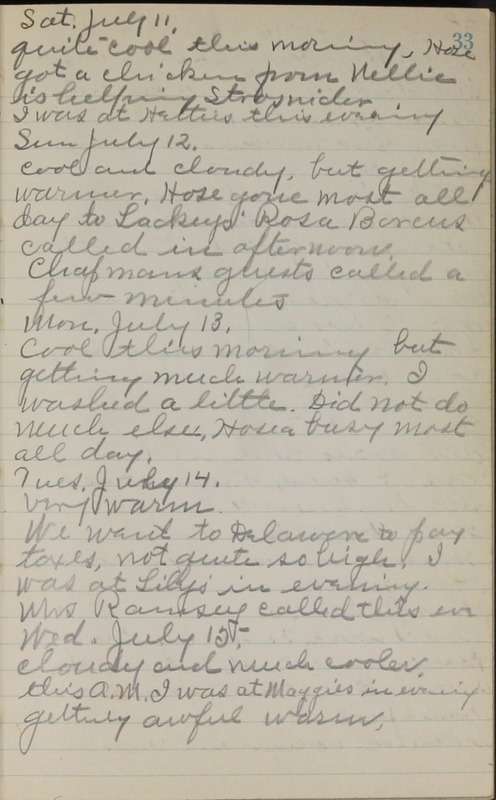 33
Sat. July 11.
quite cool this morning, Hose
got a chicken from Nellie
is helping Strosnider
I was at Hetties this evening
Sun July 12.
cool and cloudy, but getting
warmer, Hose gone most all
day to Lackeys' Rosa Borcus
called in afternoon.
Chapmans guests called a
few minutes
Mon. July 13.
Cool this morning but
getting much warmer. I
washed a little. Did not do
much else, Hosea busy most
all day.
Tues. July 14.
very warm.
We went to Delaware to pay
taxes, not quite so high. I
was at Lily's in evening.
Mrs Ramsey called this eve
Wed. July 15.
cloudy and much cooler.
this A.M. I was at Maggies in evening
getting awful warm.